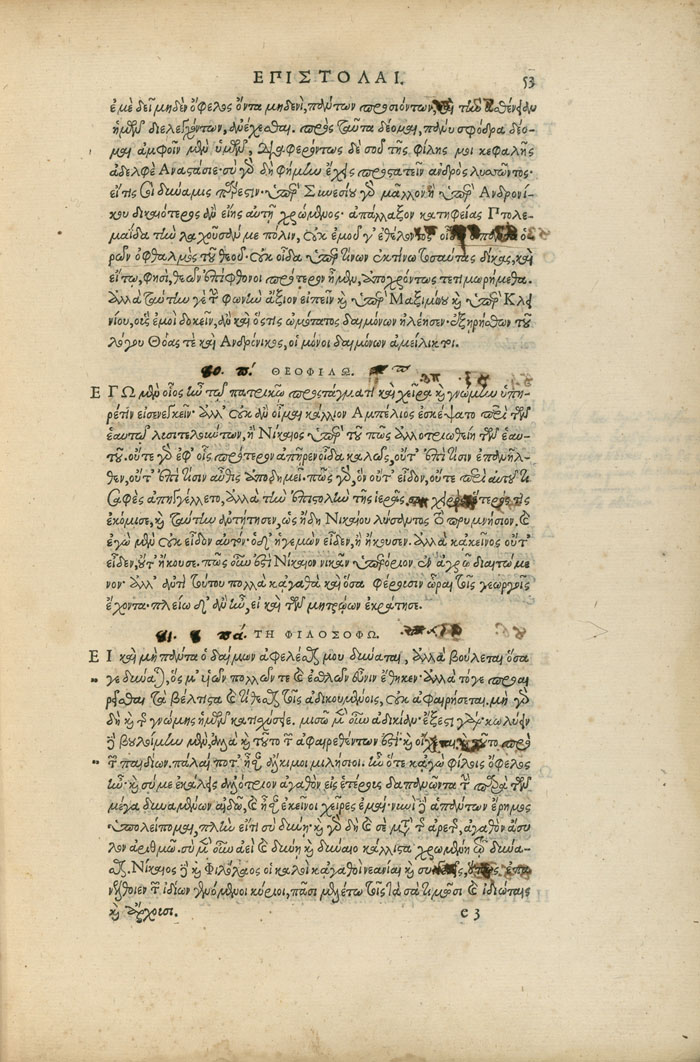 ΕΠΙΣΤΟΛΑΙ. 53
ἐμὲ δεῖ μηδὲν ὄφελος ὄντα μηδενὶ, πάντων προσιόντων, καὶ τὴν ἀσθένειαν
ἡμῶν διελεγχόντων, ἀνέχεσθαι. πρὸς ταῦτα δέομαι, πάνυ σφόδρα δέο-
μαι ἀμφοῖν μὲν ὑμῶν, διαφερόντως δὲ σοῦ τῆς φίλης μοι κεφαλῆς
ἀδελφὲ Ἀναστάσιε· σὺ γὰρ δὴ φήμην ἔχεις προστατεῖν ἀνδρὸς λυσσῶντος·
εἴ τις σοι δύναμις πάρεστιν· ὑπὲρ Συνεσίου γὰρ μᾶλλον ἢ ὑπὲρ Ἀνδρονί-
κου δικαιότερος ἂν εἴης αὐτῇ χρώμενος· ἀπάλλαξον κατηφείας Πτολε-
μαΐδα τὴν λαχοῦσάν με πόλιν, οὐκ ἐμοῦ γ' ἐθέλοντος
ρῶν ὀφθαλμὸς τοῦ θεοῦ. οὐκ οἶδα ὑπὲρ τίνων ἐκτίνω τοσαύτας δίκας, καὶ
εἴ τῳ, φησὶ, θεῶν ἐπίφθονοι πρότερον ἦμεν, ἀποχρώντως τετιμωρήμεθα.
ἀλλὰ ταύτην γε τὴν φωνὴν ἄξιον εἰπεῖν καὶ ὑπὲρ Μαξίμου καὶ ὑπὲρ Κλει-
νίου, οὓς ἐμοὶ δοκεῖν, ἂν καὶ ὅστις ὠμότατος δαιμόνων ἠλέησεν· ἐξῃρήσθων τοῦ
λόγου Θόας τὲ καὶ Ἀνδρόνικος, οἱ μόνοι δαιμόνων ἀμείλικτοι.
80. π΄. ΘΕΟΦΙΛΩ.
ΕΓΩ μὲν οἷος ἦν τῷ πατρικῷ προστάγματι καὶ χεῖρα καὶ γνώμην ὑπη-
ρέτιν εἰσενεγκεῖν· ἀλλ' οὐκ ἂν οἶμαι κάλλιον Ἀμπέλιος ἐσκέψατο περὶ τῶν
ἑαυτῷ λυσιτελούντων, ἢ Νίκαιος ὑπὲρ τοῦ πῶς ἀλλοτριωθείη τῶν ἑαυ-
τοῦ. οὔτε γὰρ ἐφ' οἷς πρότερον ἀπήρεν οἶδα καλῶς, οὔτ' ἐπὶ τίσιν ἐπανῆλ-
θεν, οὔτ' ἐπὶ τίσιν αὖθις ἀποδημεῖ. πῶς γὰρ, ὃν οὔτ' εἶδον, οὔτε περὶ αὐτοῦ τι
σαφὲς ἀπηγγέλλετο, ἀλλὰ τὴν ἐπιστολὴν τῆς ἱερᾶς
ἐκόμισε, καὶ ταύτην ἀντήτησεν, ὡς ἤδη Νικαίου λύσαντος τὸ πρυμνήσιον, καὶ
ἐγὼ μὲν οὐκ εἶδον αὐτόν· ὁ δ' ἡγεμὼν εἶδεν, ἢ ἤκουσεν. ἀλλὰ κἀκεῖνος οὔτ'
εἶδεν, οὔτ' ἤκουσε. πῶς οὖν ἔστι Νίκαιον νικᾶν ὑπερόριον ἐν ἀγρῷ διαιτώμε
νον· ἀλλ' ἀντὶ τούτου πολλὰ κἀγαθὰ καὶ ὅσα φέρουσιν ὧραι τοῖς γεωργοῖς
ἔχοντα· πλείω δ' ἂν ἦν, εἰ καὶ τῶν μητρῴων ἐκράτησε.
81. πά. ΤΗ ΦΙΛΟΣΟΦΩ.
ΕΙ καὶ μὴ πάντα ὁ δαίμων ἀφελέσθαι μου δύναται, ἀλλὰ βούλεται ὅσα
γε δύναται, ὅς μ' υἱῶν πολλῶν τε καὶ ἐσθλῶν εὖνιν ἔθηκεν· ἀλλὰ τό γε προαι
ρεῖσθαι τὰ βέλτιστα καὶ τίθεσθαι τοῖς ἀδικουμένοις, οὐκ ἀφαιρήσεται. μὴ γὰρ
δὴ καὶ τῆς γνώμης ἡμῶν κατισχύσειε. μισῶ μὲν οὖν ἀδικίαν· ἔξεστι γάρ· κωλύειν
δὲ βουλοίμην μὲν, ἀλλὰ καὶ τοῦτο τῶν ἀφαιρεθέντων ἐστί· καὶ οἴχεται καὶ τοῦτο πρὸ
τῶν παιδίων. πάλαι ποτ' ἦσαν ἄλκιμοι μιλήσιοι. ἦν ὅτε κἀγὼ φίλοις ὄφελος
ἦν· καὶ σύ με ἐκάλεις ἀλλότριον ἀγαθὸν εἰς ἑτέρους δαπανῶντα τὴν παρὰ τῶν
μέγα δυναμένων αἰδῶ, καὶ ἦσαν ἐκεῖνοι χεῖρες ἐμαί· νυνὶ δὲ ἁπάντων ἔρημος
ὑπολείπομαι, πλὴν εἴ τι σὺ δύνῃ· καὶ γὰρ δὴ καὶ σὲ μετὰ τῆς ἀρετῆς, ἀγαθὸν ἄσυ
λον ἀριθμῶ. σὺ μὲν οὖν ἀεὶ καὶ δύνῃ καὶ δύναιο κάλλιστα χρωμένη τῷ δύνα-
σθαι. Νίκαιος δὲ καὶ Φιλόλαος οἱ καλοὶ κἀγαθοὶ νεανίαι καὶ
νέλθοιεν τῶν ἰδίων γενόμενοι κύριοι, πᾶσι μελέτω τοῖς τὰ σὰ τιμῶσι καὶ ἰδιώταις
καὶ ἄρχουσι. e 3